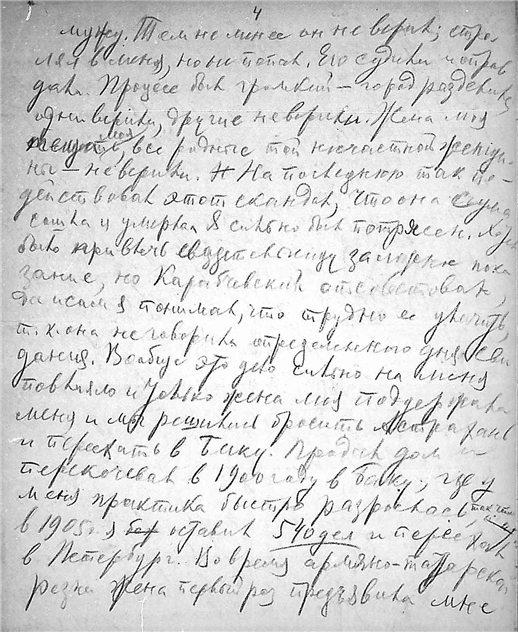 4
мужу. Тем не менее он не верил; стре
лял в меня, но не попал. Его судили и оправ
дали. Процесс был громкий — город разделился,
одни верили, другие не верили. Жена моя
моя все родные той несчастной женщи
ны — не верили. На последнюю так по-
действовал этот скандал, что она сошла
с ума и умерла. Я сильно был потрясен.
было привлечь свидетельницу за ложное пока
зание, но Карабчевский отсоветовал,
да и сам я понимал, что трудно ее уличить,
т.к. она не говорила определенного дня сви
дания. Вообще это дело сильно на меня
повлияло и только жена моя поддержала
меня и мы решили бросить Астрахань
и переехать в Баку. Продав дом я
перекочевал в 1900 году в Баку, где у
меня практика быстро разрослась, так что
в 1905 г. я оставил 540 дел и переехал
в Петербург. Во время армяно-татарской
резни жена первый раз предъявила мне